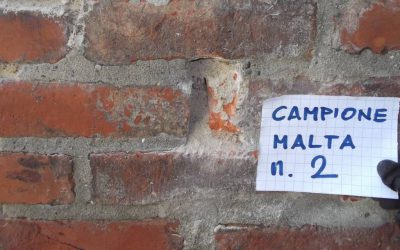 CAMPIONE
MALTA
n. 2